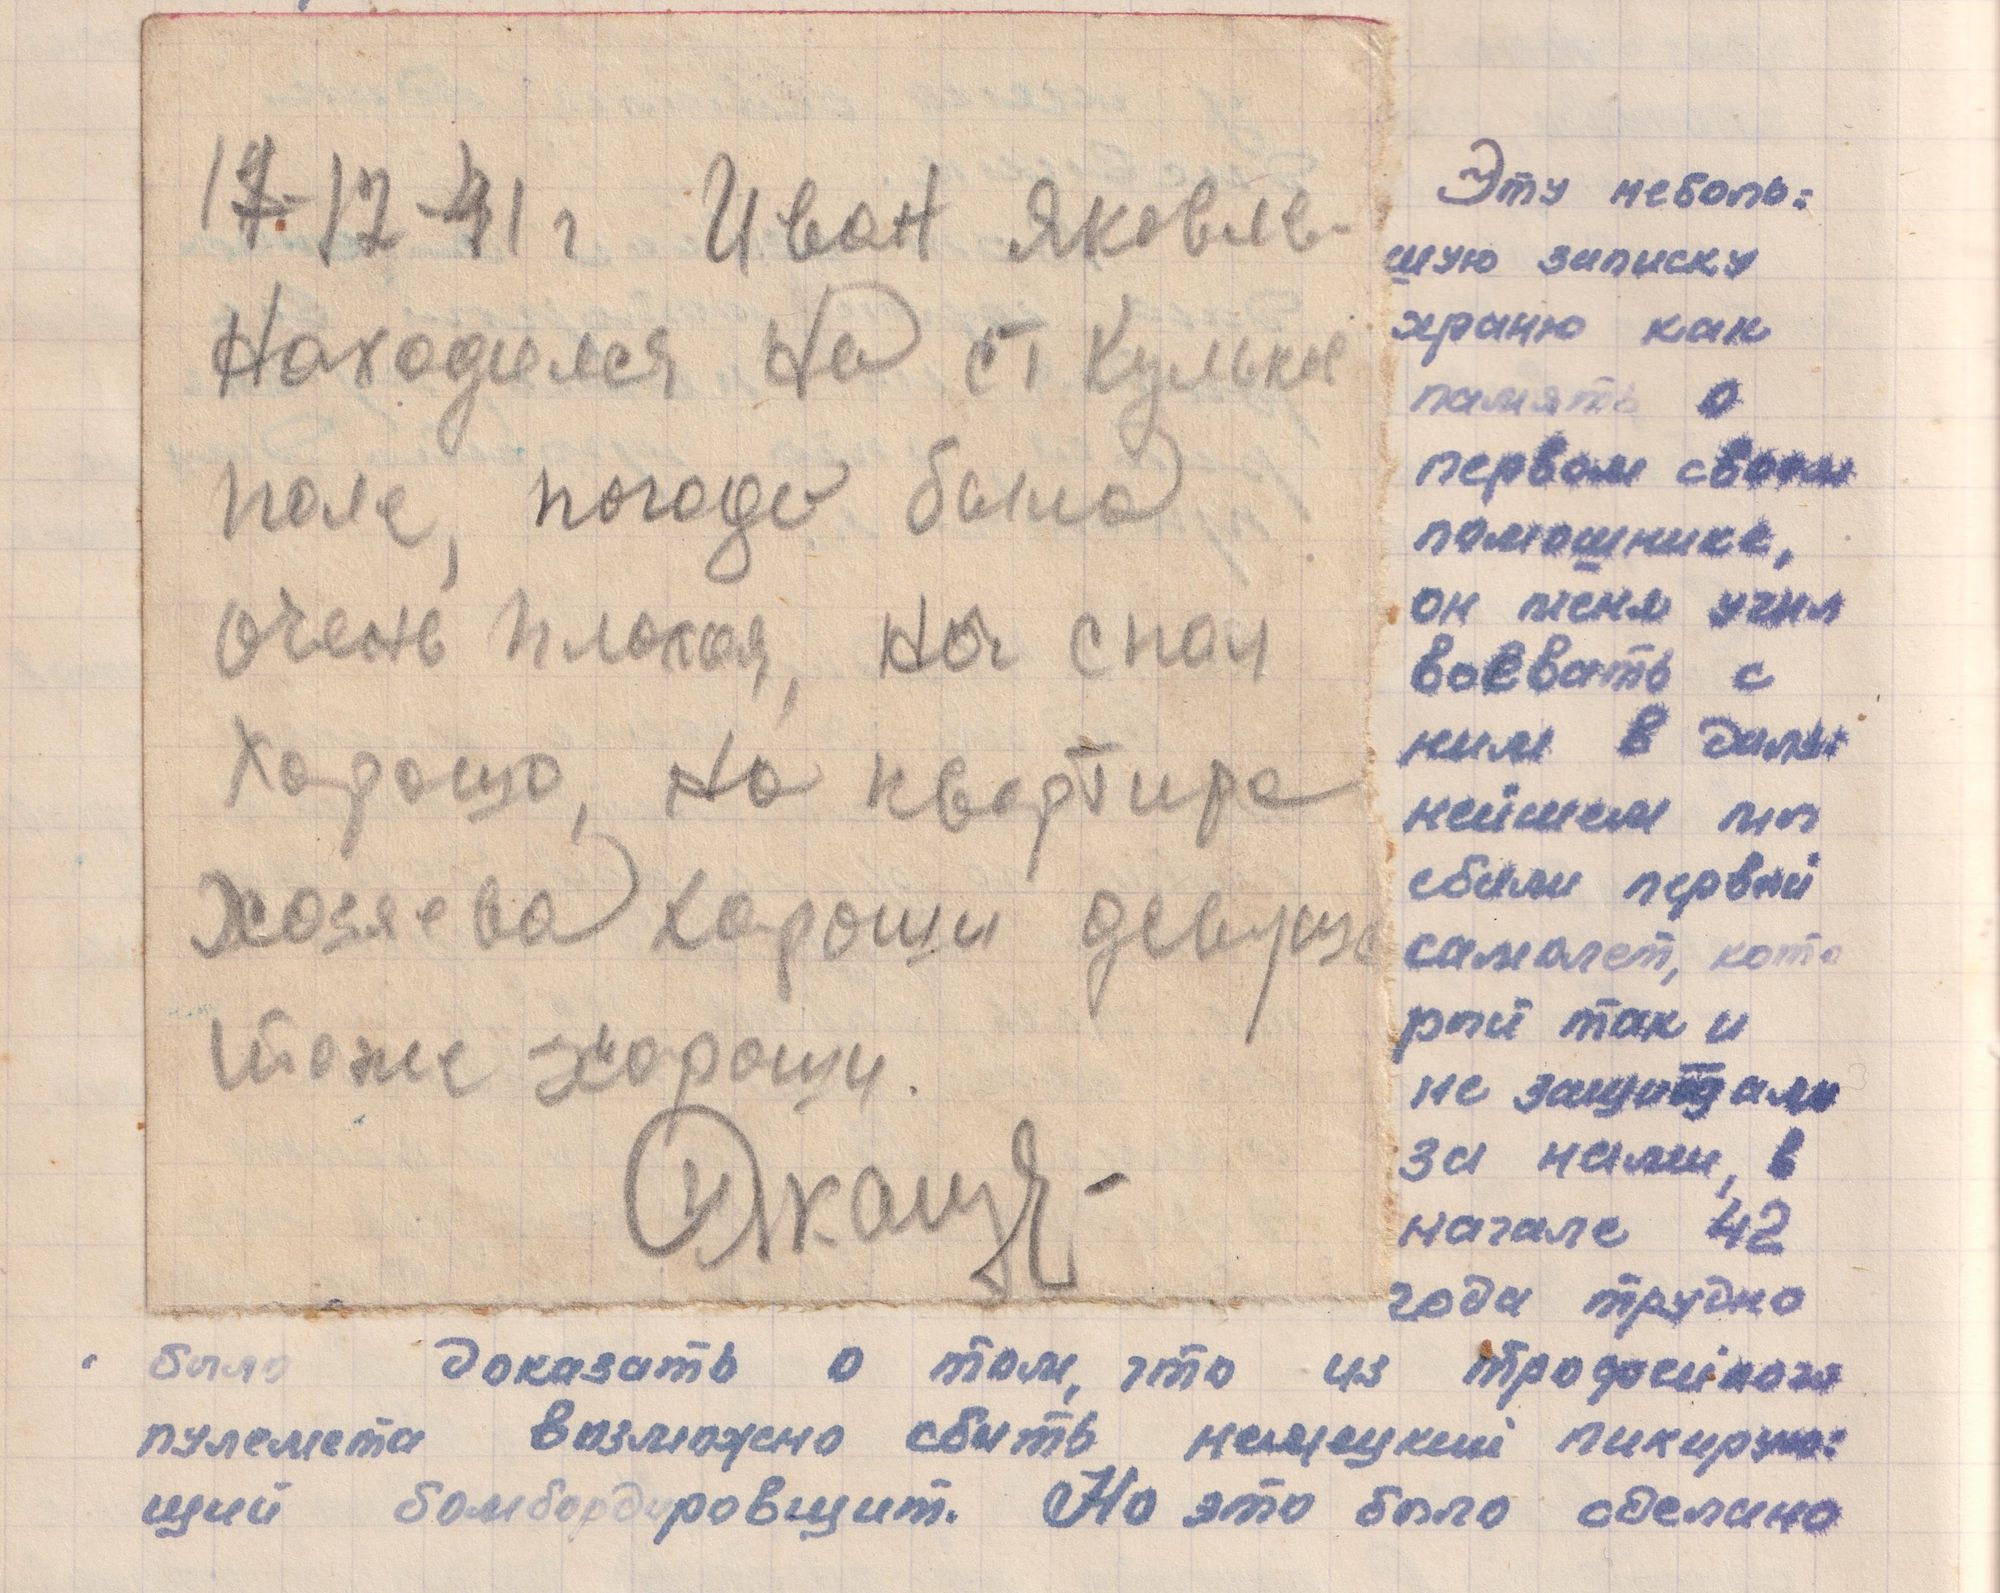 17-12-41 г Иван Яковлев-
Находился на ст Кульки
поле, погода была
очень плохая, ноч спал
хорошо, на квартире
хозяева хороши девушк
тоже хороши.
Эту неболь=
шую записку
храню как
память о
первом своем
помошнике,
он меня учил
воевать с
ним в даль
нейшем мы
сбили первый
самолет, кото
рый так и
не защитали
за нами, в
начале 42
года трудно
было доказать о том, что из трофейного
пулемета возможно сбить немецкий пикирую=
щий бомбордировщит. Но это было сделано